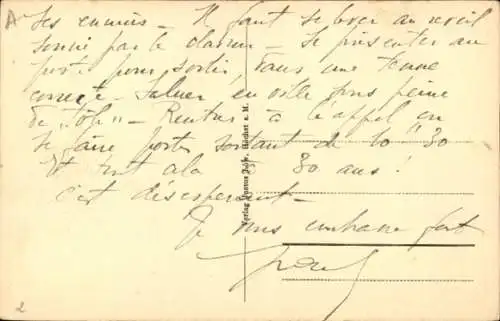 A
Ses ennuis - Il faut se lever au réveil
sonné par le clairon - Se présenter au
poste pour sortir, dans une tenue
correcte. Saluer en ville sous peine
de "tôle" - Rentrer à l'appel ou
se faire porter sortant de 10 30
Et tout cela à 30 ans!
c'est désespérant -
Je vous embrasse fort
Verlag Höchst a. M.
2